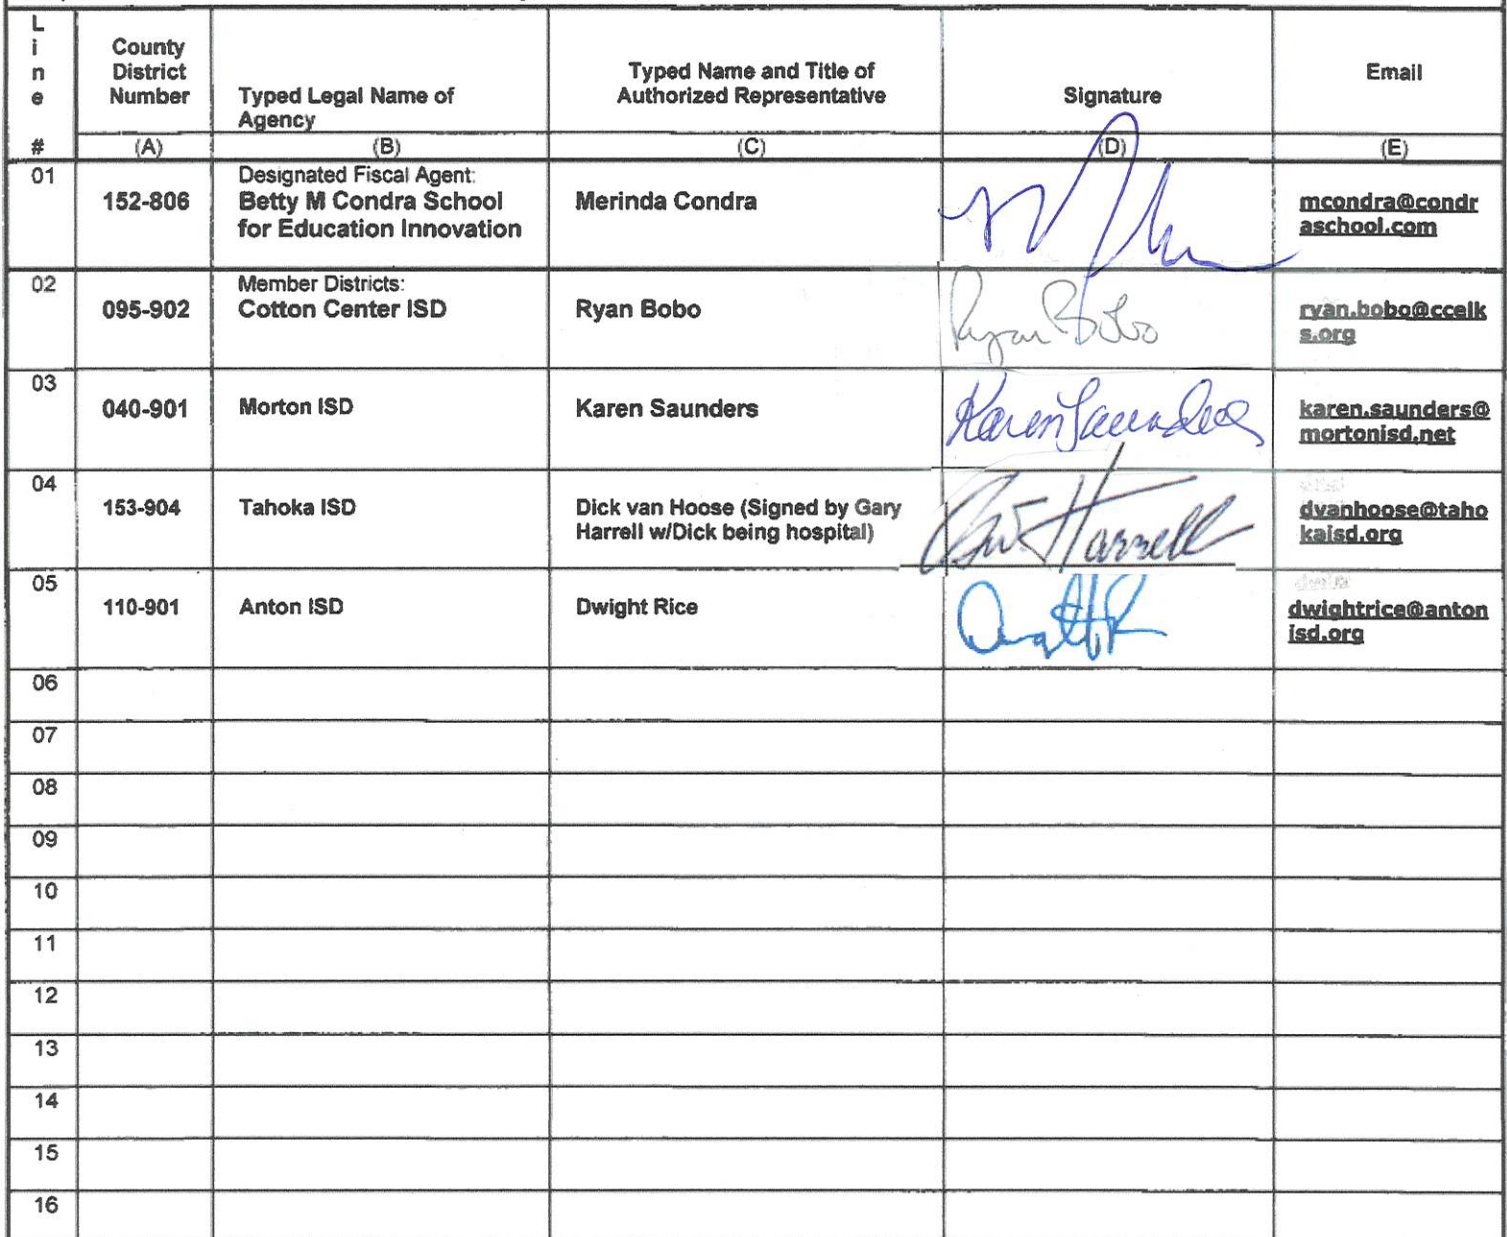 L
i
n
e
#
County
District
Number
(A)
Typed Legal Name of
Agency
(B)
Typed Name and Title of
Authorized Representative
(C)
Signature
(D)
Email
(E)
01
152-806
Designated Fiscal Agent:
Betty M Condra School
for Education Innovation
Merinda Condra
mcondra@condr
aschool.com
02
095-902
Member Districts:
Cotton Center ISD
Ryan Bobo
Ryan Bobo
ryan.bobo@ccelk
s.org
03
040-901
Morton ISD
Karen Saunders
Karen Saunders
karen.saunders@
mortonisd.net
04
153-904
Tahoka ISD
Dick van Hoose (Signed by Gary
Harrell w/Dick being hospital)
Harrell
dvanhoose@taho
kaisd.org
05
110-901
Anton ISD
Dwight Rice
dwightrice@anton
isd.org
06
07
08
09
10
11
12
13
14
15
16